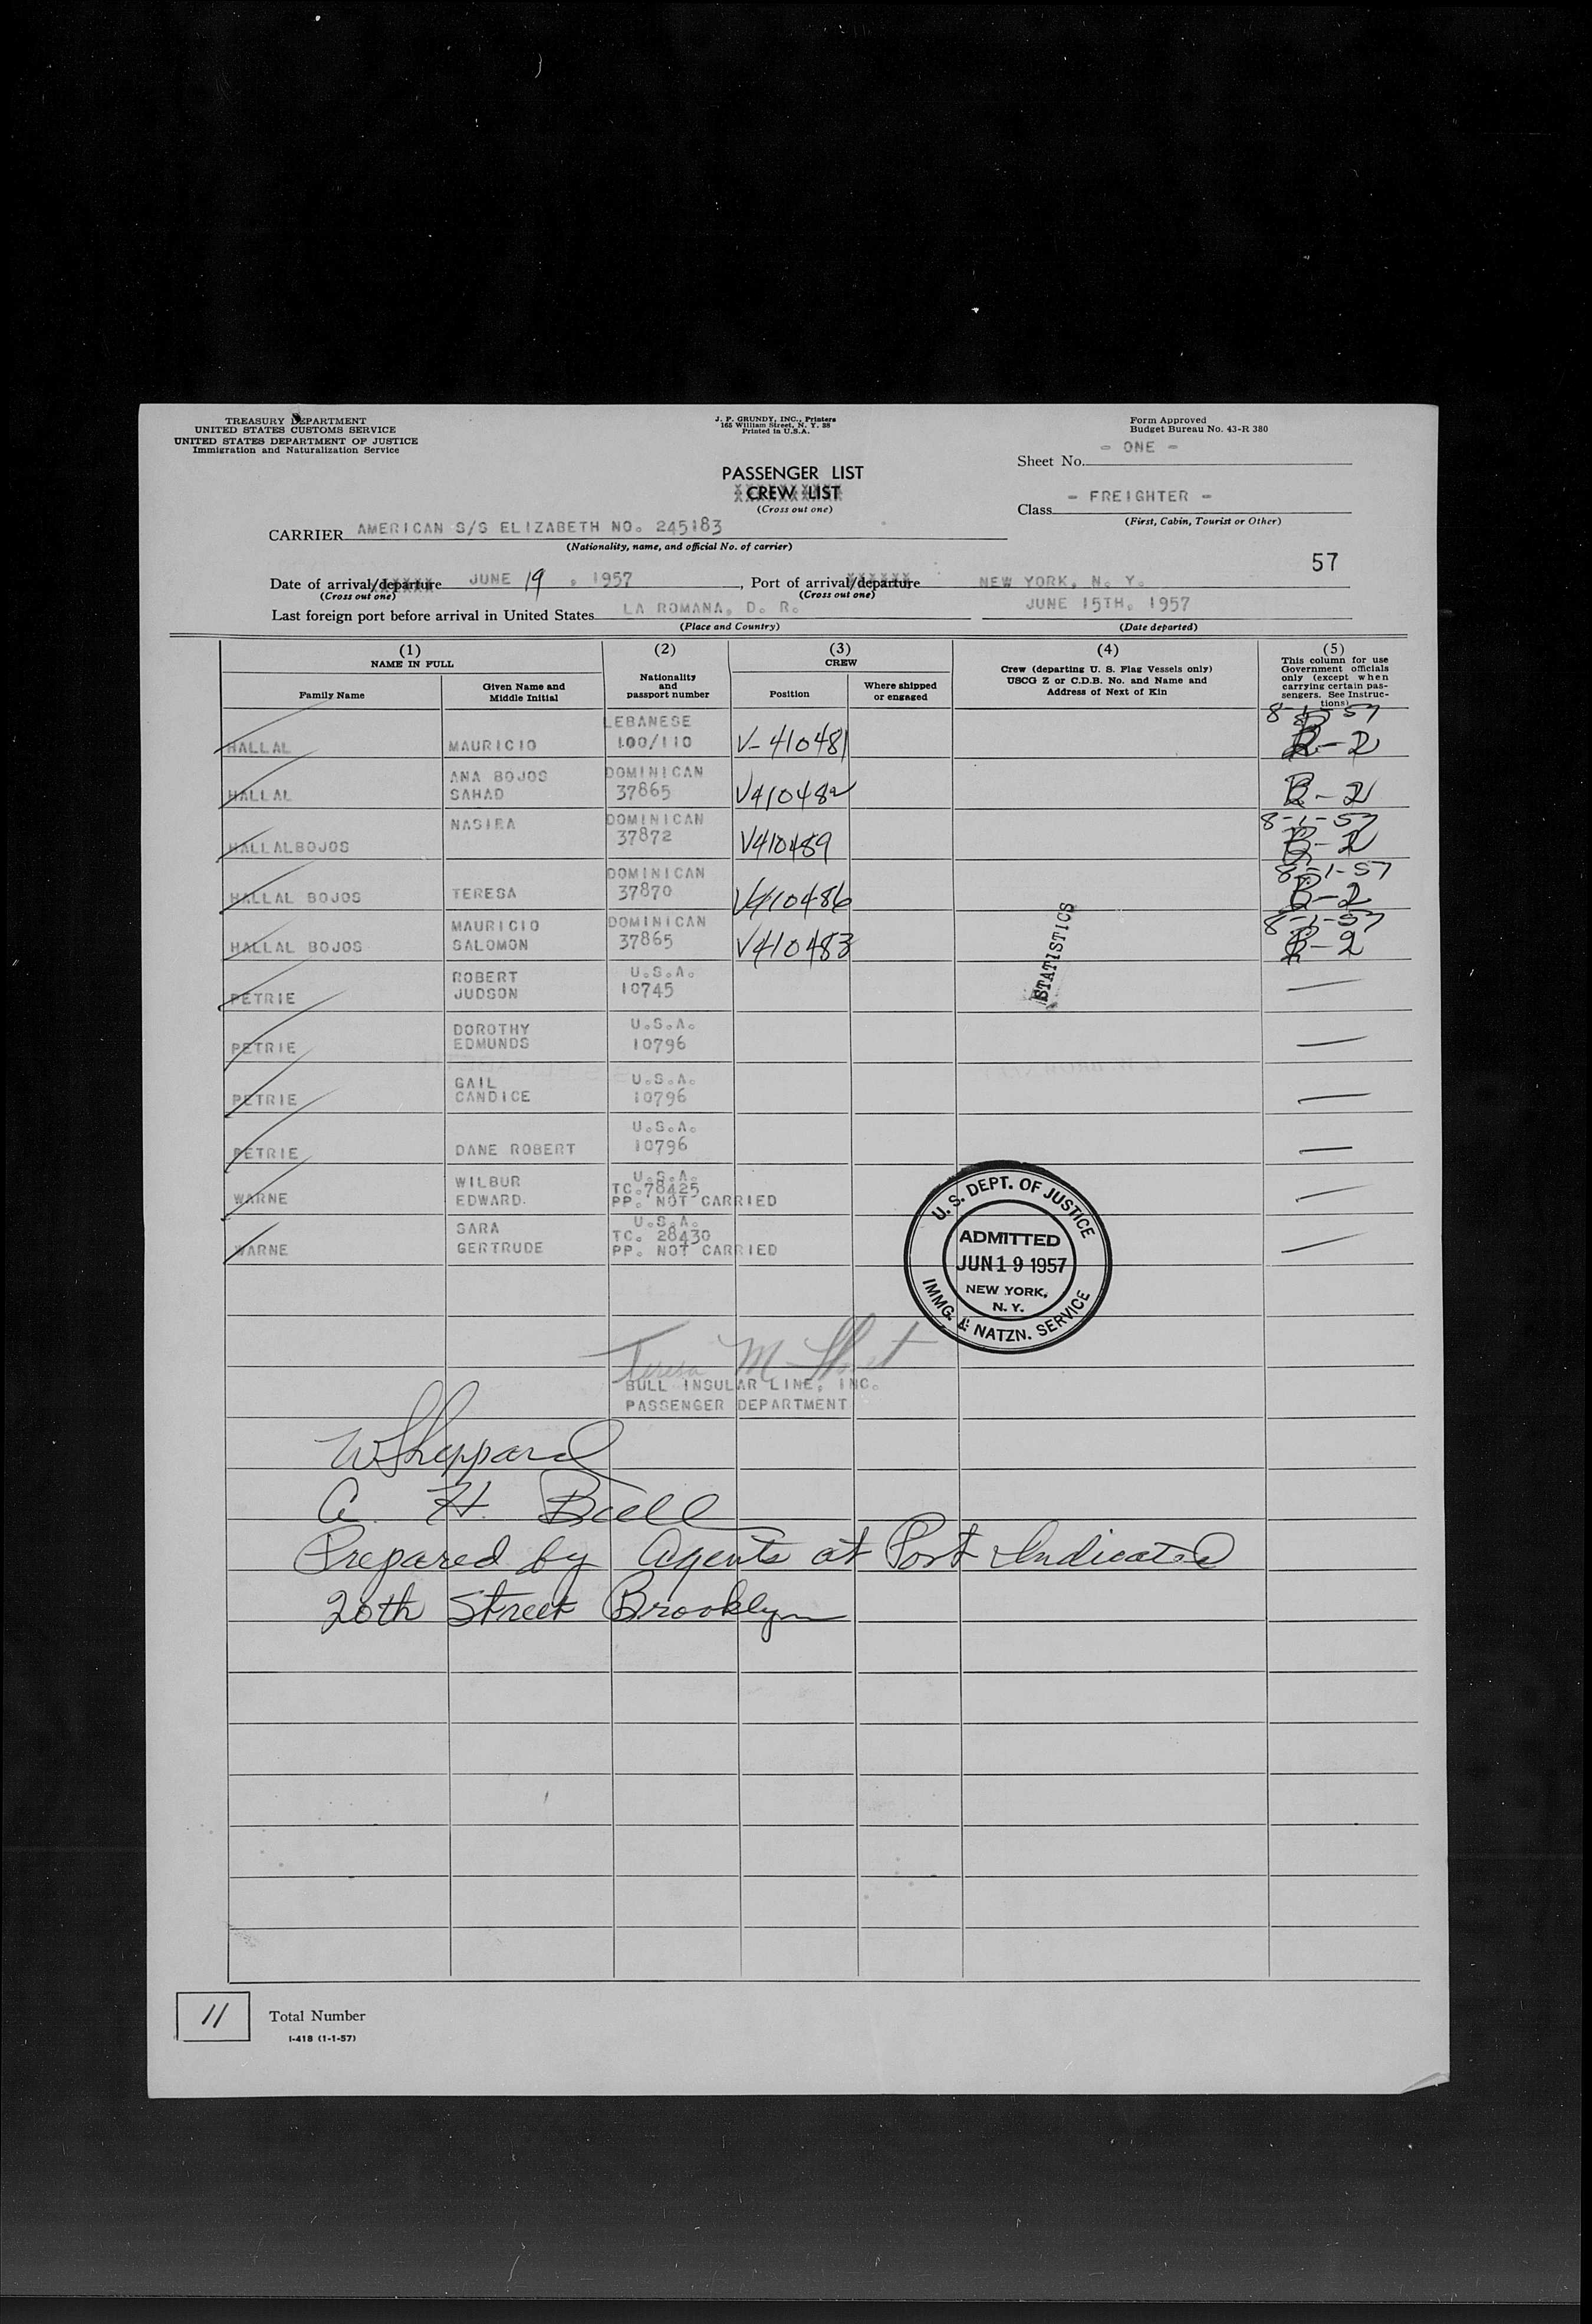 TREASURY DEPARTMENT
UNITED STATES CUSTOMS SERVICE
UNITED STATES DEPARTMENT OF JUSTICE
Immigration and Naturalization Service
J. P. GRUNDY, INC., Printers
165 William Street, N. Y. 38
Printed in U.S.A.
Form Approved
Budget Bureau No. 43-R 380
Sheet No. - ONE -
PASSENGER LIST
CREW LIST
(Cross out one)
Class - FREIGHTER -
(First, Cabin, Tourist or Other)
CARRIER AMERICAN S/S ELIZABETH NO. 245183
(Nationality, name, and official No. of carrier)
57
Date of arrival/departure JUNE 19, 1957, Port of arrival/departure NEW YORK, N. Y.
(Cross out one) (Cross out one)
Last foreign port before arrival in United States LA ROMANA, D. R. JUNE 15TH, 1957
(Place and Country) (Date departed)
(1) (2) (3) (4) (5)
NAME IN FULL
Family Name
Given Name and Middle Initial
Nationality and passport number
CREW
Position
Where shipped or engaged
Crew (departing U. S. Flag Vessels only)
USCG Z or C.D.B. No. and Name and
Address of Next of Kin
This column for use
Government officials
only (except when
carrying certain pas-
sengers. See Instruc-
tions)
HALLAL MAURICIO LEBANESE 100/110 V-410481 8-1-57 B-2
HALLAL ANA BOJOS SAHAD DOMINICAN 37865 V410482 B-2
HALLALBOJOS DOMINICAN 37872 V410489 8-1-57 B-2
HALLAL BOJOS TERESA DOMINICAN 37870 V410486 8-1-57 B-2
HALLAL BOJOS MAURICIO SALOMON DOMINICAN 37865 V410483 8-1-57 B-2
STATISTICS
PETRIE ROBERT JUDSON U.S.A. 10745 —
PETRIE DOROTHY EDMUNDS U.S.A. 10796 —
PETRIE GAIL CANDICE U.S.A. 10796 —
PETRIE DANE ROBERT U.S.A. 10796 —
WARNE WILBUR EDWARD. U.S.A. TC.78425 PP. NOT CARRIED —
WARNE SARA GERTRUDE U.S.A. TC. 28430 PP. NOT CARRIED —
U. S. DEPT. OF JUSTICE
ADMITTED
JUN 19 1957
NEW YORK,
N. Y.
IMMG. & NATZN. SERVICE
Teresa M
BULL INSULAR LINE, INC.
PASSENGER DEPARTMENT
W Sheppard
A. H. Bull
Prepared by Agents at Port Indicated
20th Street Brooklyn
11 Total Number
I-418 (1-1-57)